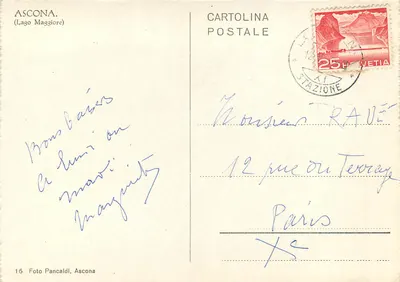 ASCONA.
(Lago Maggiore)
CARTOLINA
POSTALE
25 HELVETIA
XI
STAZIONE
Bons baisers
à lundi ou
mardi
Marguerite
Monsieur RAVÉ
12 rue du Terrage
Paris
Xe
16 Foto Pancaldi, Ascona